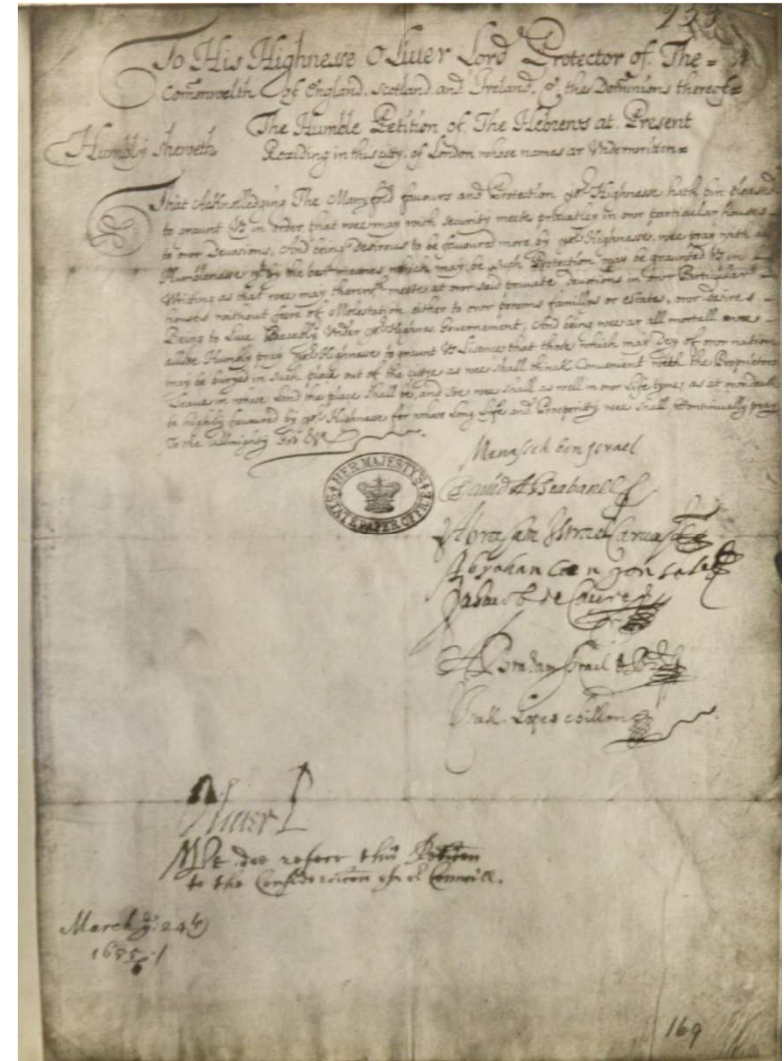 233
To His Highnesse Oliver Lord Protector of The =
Comonwelth of England, Scotland and Ireland, & the Dominions thereof =
The Humble Petition of The Hebrews at Present
Humbly Sheweth Reziding in this citty of London whose names ar Underwritten =
That Acknolledging The Manyfold favours and Protection yor Highnesse hath bin pleased
to graunt Us in order that wee may with security meete privatley in owr particular houses
to owr Devosions, And being desirous to be favoured more by yor Highnesse, wee pray with
Humblenesse yt by the best meanes which may be such Protection may be graunted Us in
Writting as that wee may therewth meete at owr said private devosions in owr Particular
houses without feere of Molestation either to owr persons famillys or estates, owr desires
Being to Live Peacebly Under yor Highnes Governement, And being wee ar all mortall wee
allsoe Humbly pray yor Highnesse to graunt Us Lisence that those which may dey of owr nation
may be buryed in such place out of the cittye as wee shall thinck Convenient with the Proprietors
Leave in whose Land this place shall be, and soe wee shall as well in owr Life tyme, as at owr death
be highly favoured by yor Highnesse for whose Long Life and Prosperity wee shall Continually pray
To the allmighty God &c
HER MAJESTY'S
STATE PAPER OFFICE
Menasseh ben Israel
David Abrabanel
Abraham Israel Carvajal
Abraham Coen Gonsales
Jahacob de Caceres
Abraham Israel de
Isak Lopes Chillon
Oliver P
Wee doe referr this Peticon
to the Consideracon of ye Councill.
March ye 24th
1655/6
169